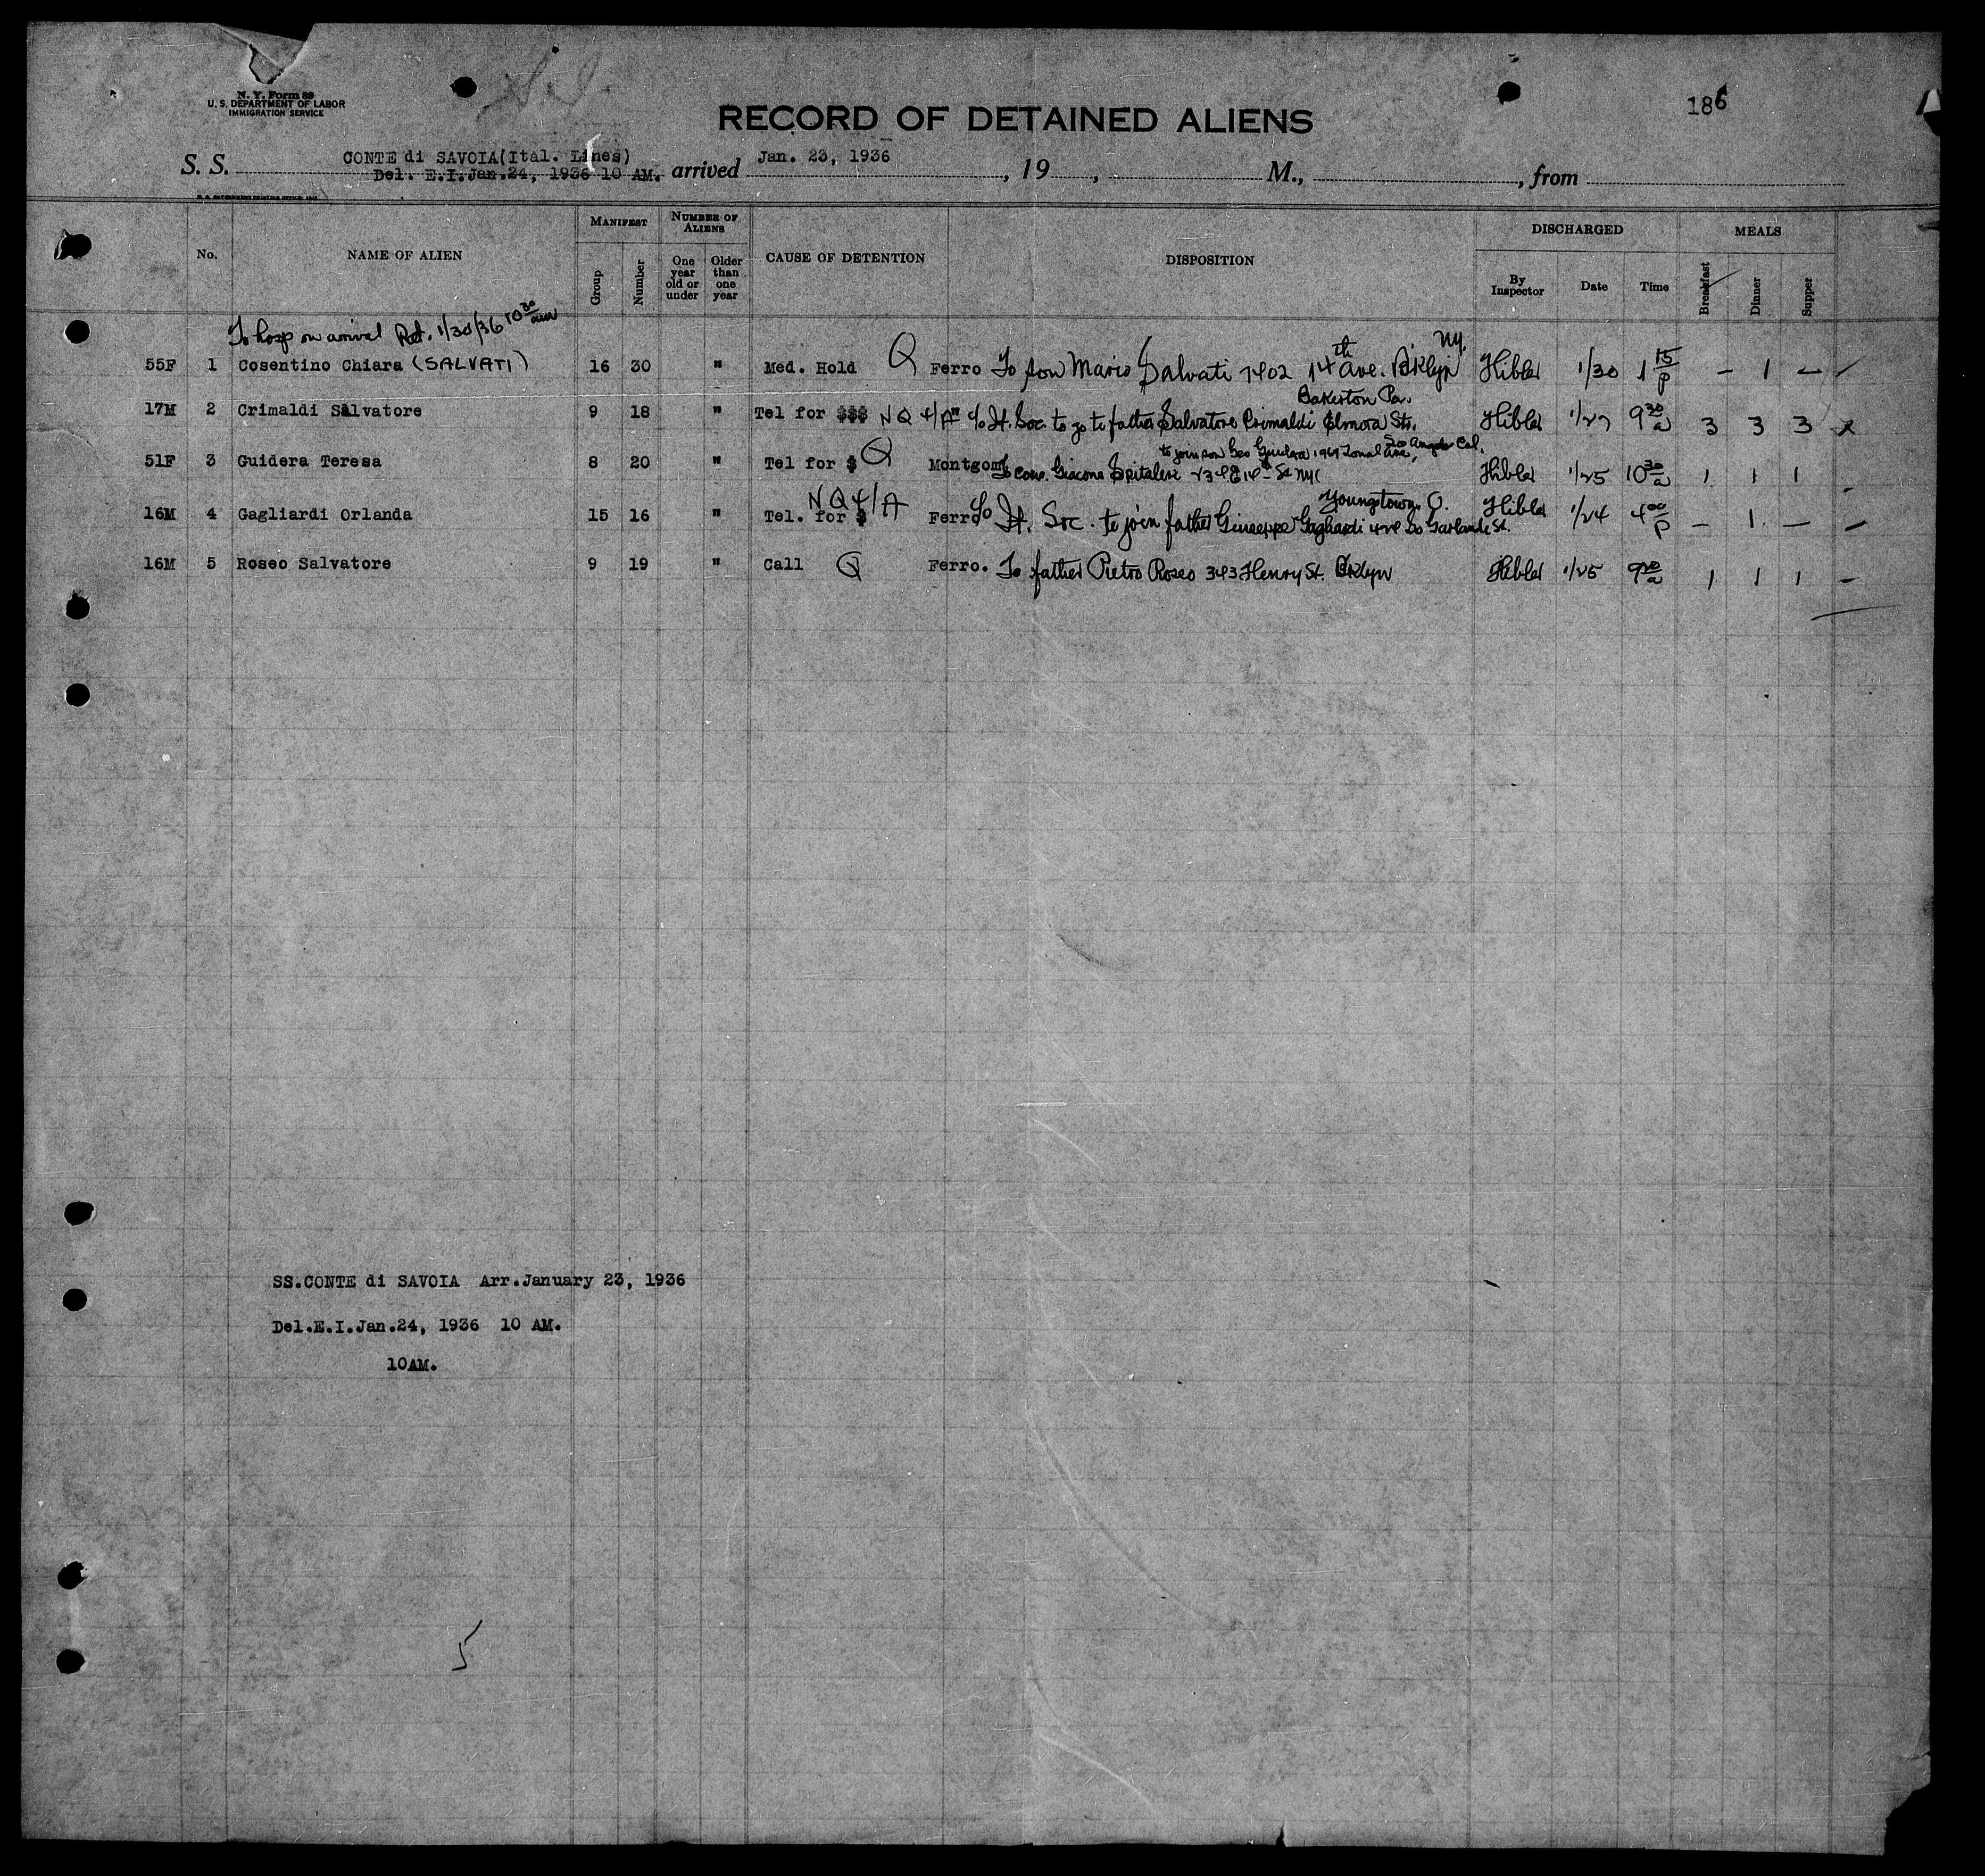 S.I.
N. Y. Form 89
U. S. DEPARTMENT OF LABOR
IMMIGRATION SERVICE
RECORD OF DETAINED ALIENS
186
S. S. CONTE di SAVOIA(Ital. Lines) arrived Jan. 23, 1936, 19 , M., , from
Del. E.I.Jan.24, 1936 10 AM.
No. NAME OF ALIEN MANIFEST Group Number NUMBER OF ALIENS One year old or under Older than one year CAUSE OF DETENTION DISPOSITION DISCHARGED By Inspector Date Time MEALS Breakfast Dinner Supper
To hosp on arrival Ret. 1/30/36 10 30 am
55F 1 Cosentino Chiara (SALVATI) 16 30 " Med. Hold Q Ferro To son Mario Salvati 7402 14th Ave. Bklyn NY. Hibler 1/30 1 15 P – 1 –
Bakerton Pa.
17M 2 Crimaldi Salvatore 9 18 " Tel for $$$ NQ 4/A " c/o It. Soc. to go to father Salvatore Crimaldi Elmora Str. Hibler 1/27 9 30 a 3 3 3 x
to join son Geo Guidera 1969 Zonal Ave, Los Angeles Cal.
51F 3 Guidera Teresa 8 20 " Tel for $ Q Montgom To cous. Giacone Spitaleri 234 E 14 St NYC Hibler 1/25 10 30 a 1 1 1 –
Youngstown, O.
16M 4 Gagliardi Orlanda 15 16 " Tel. for $ NQ 4/A Ferro c/o It. Soc. to join father Giuseppe Gagliardi So Garlande St. Hibler 1/24 4 00 P – 1 – –
16M 5 Roseo Salvatore 9 19 " Call Q Ferro. To father Pietro Roseo 343 Henry St. Bklyn Hibler 1/25 9 a 1 1 1 –
SS.CONTE di SAVOIA Arr.January 23, 1936
Del.E.I.Jan.24, 1936 10 AM.
10AM.
5